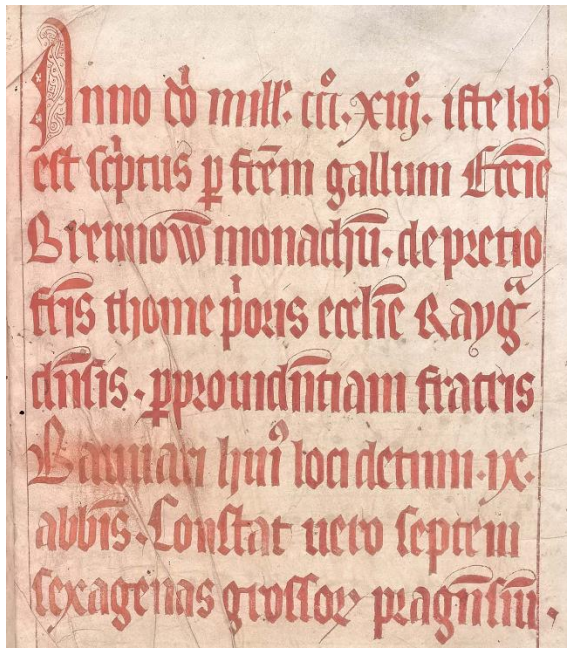 Anno dn̄i mill̄. ccͦc. xiiijͦ. iste lib̾
est scͥptus ꝑ fr̄em gallum Ecc̄ie
Breunow̄ monachū. de pretio
fr̄is thome pͥoris eccl̄ie Raygᷓ
dn̄sis. ꝑ prouidn̄tiam fratris
Bauuari huiꝰ loci decimi. ix.
abb̄is. Constat uero septem
sexagenas grossoꝝ pragn̄siū.